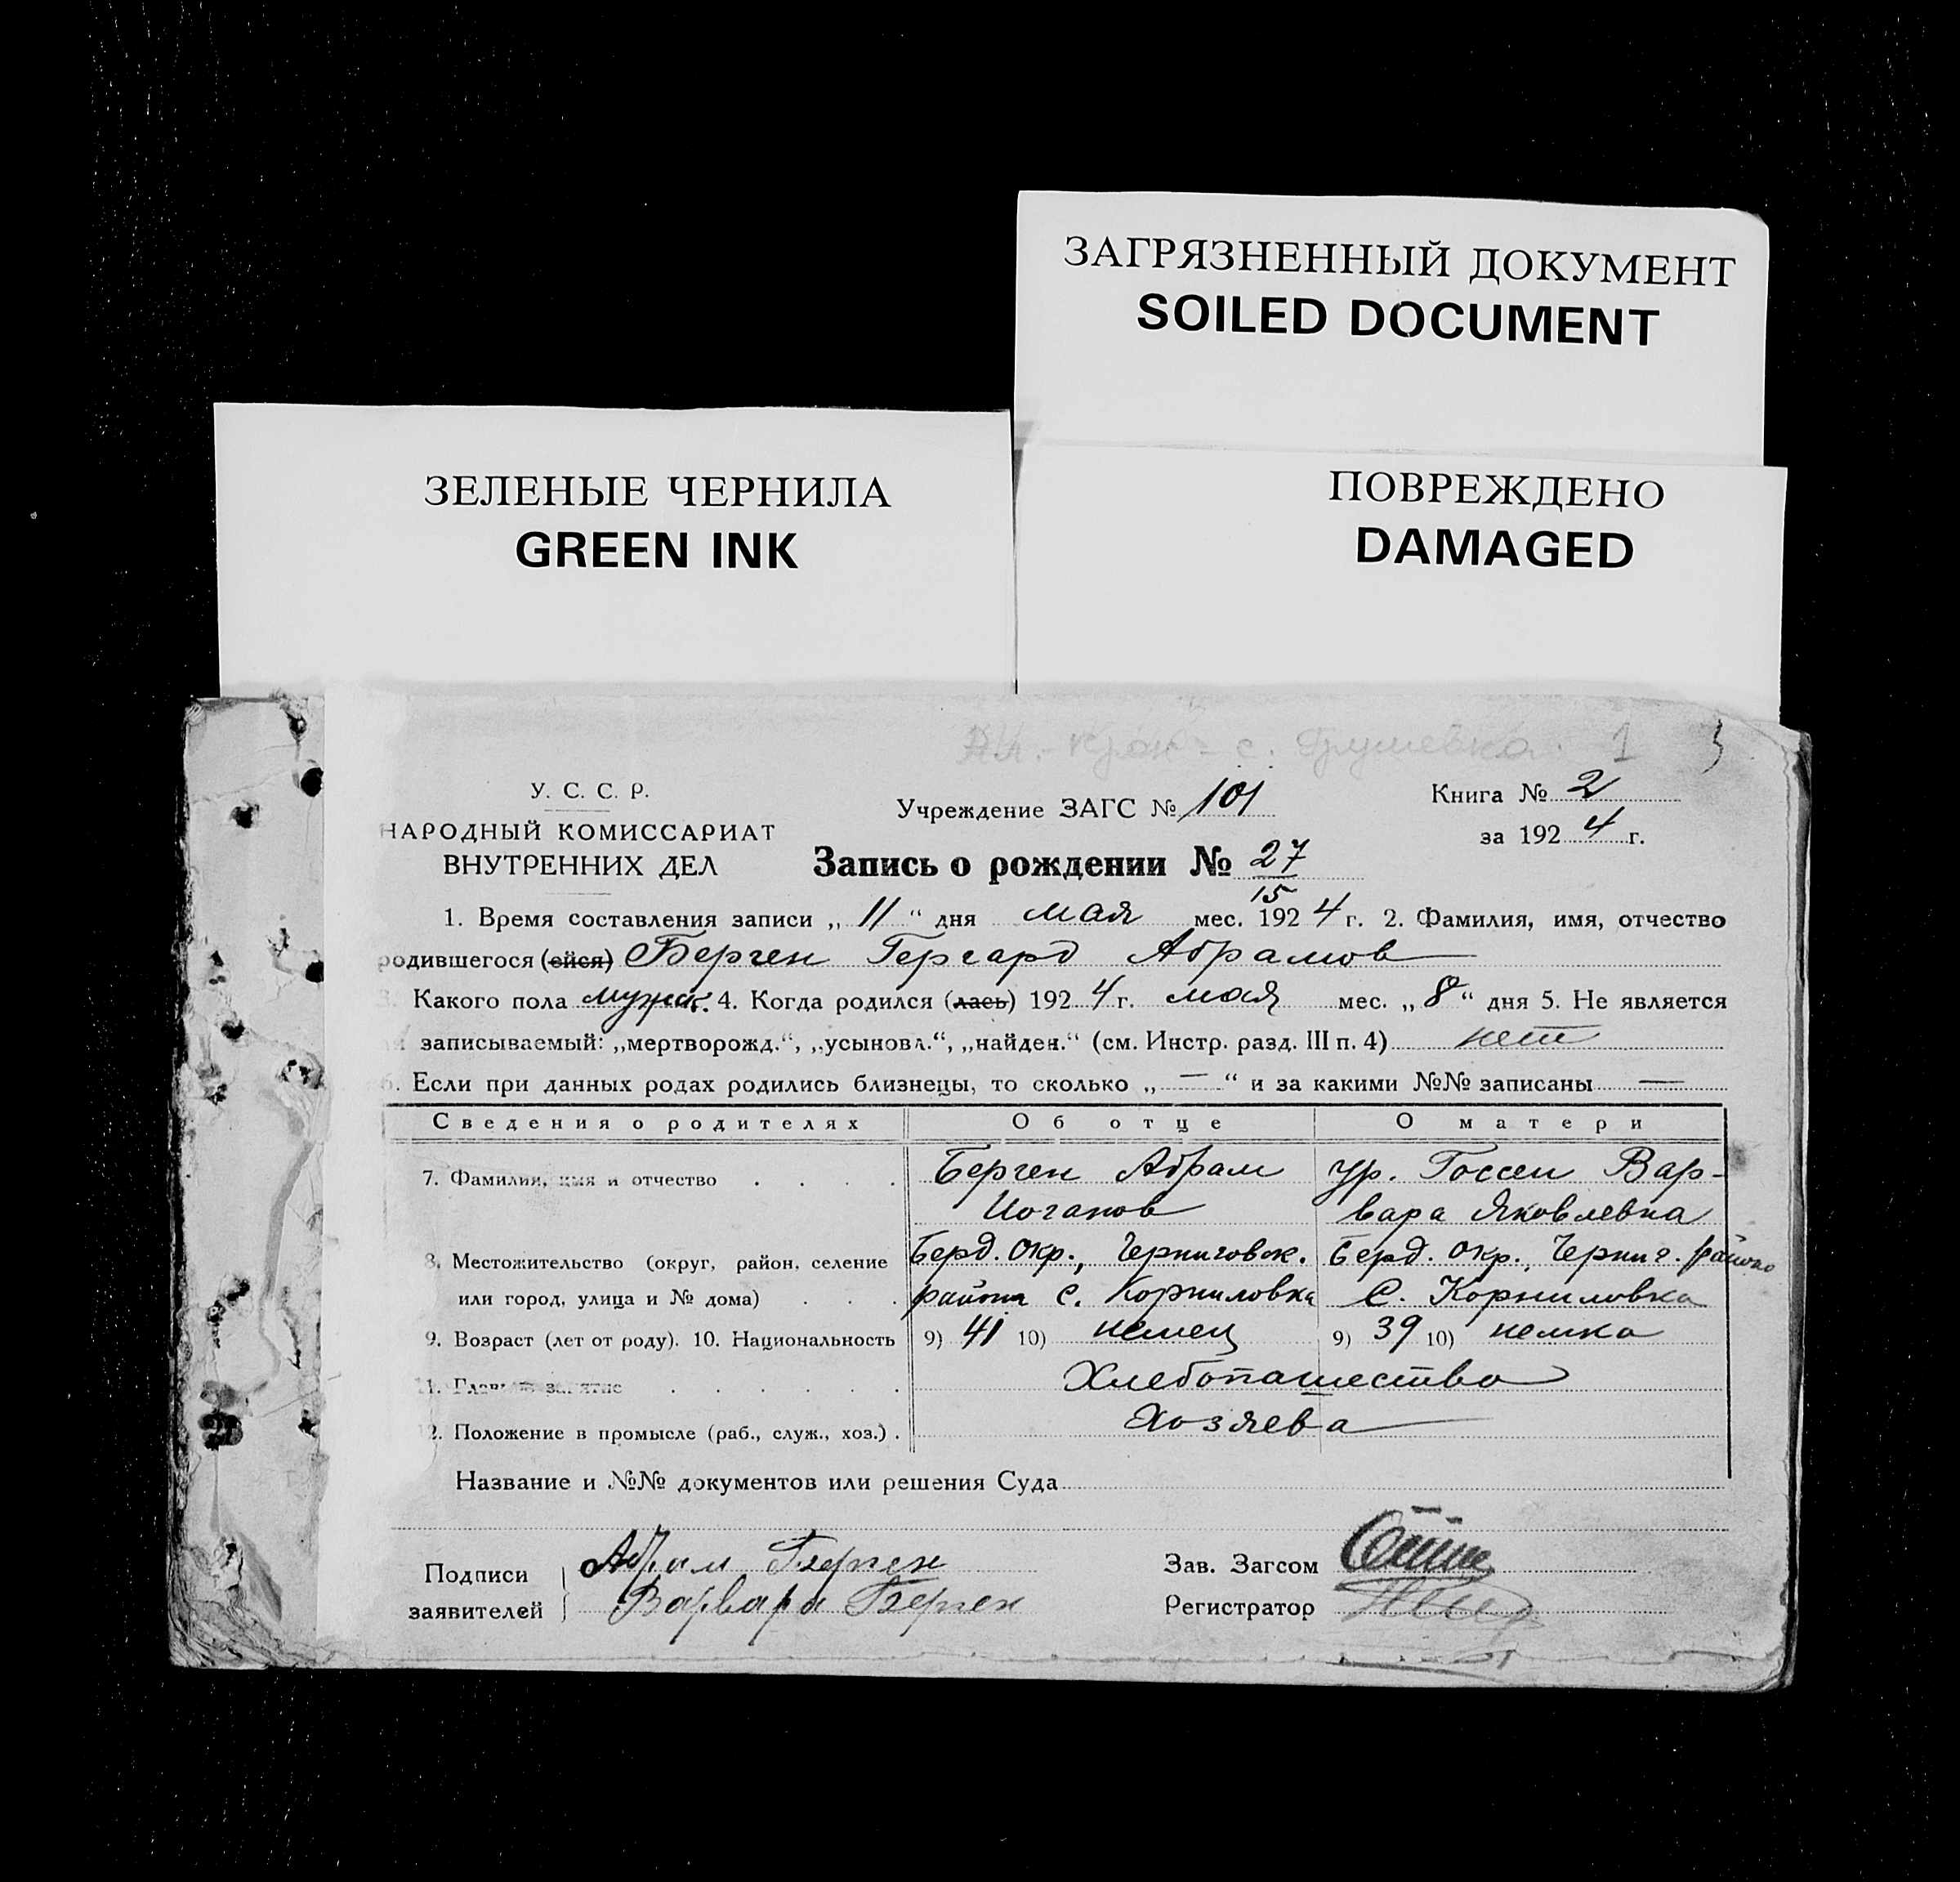 ЗАГРЯЗНЕННЫЙ ДОКУМЕНТ
SOILED DOCUMENT
ЗЕЛЕНЫЕ ЧЕРНИЛА
GREEN INK
ПОВРЕЖДЕНО
DAMAGED
с. Грушевка. 1
У. С. С. Р.
НАРОДНЫЙ КОМИССАРИАТ
ВНУТРЕННИХ ДЕЛ
Учреждение ЗАГС № 101
Книга № 2
за 1924 г.
Запись о рождении № 27
15
1. Время составления записи „11“ дня мая мес. 1924 г. 2. Фамилия, имя, отчество
родившегося (ейся) Берген Гергард Абрамов
3. Какого пола мужск. 4. Когда родился (лась) 1924 г. мая мес. „8“ дня 5. Не является
записываемый: „мертворожд.“, „усыновл.“, „найден.“ (см. Инстр. разд. III п. 4) нет
6. Если при данных родах родились близнецы, то сколько „—“ и за какими №№ записаны —
Сведения о родителях Об отце О матери
7. Фамилия, имя и отчество . . . . Берген Абрам ур. Госсен Вар-
Иоганов вара Яковлевна
8. Местожительство (округ, район, селение Берд. окр., Черниговск. Берд. окр., Черниг. района
или город, улица и № дома) . . . района с. Корниловка с. Корниловка
9. Возраст (лет от роду). 10. Национальность 9) 41 10) немец 9) 39 10) немка
11. Главное занятие . . . . . . Хлебопашество
12. Положение в промысле (раб., служ., хоз.) . Хозяева
Название и №№ документов или решения Суда
Подписи заявителей } Абрам Берген
Варвара Берген
Зав. Загсом
Регистратор